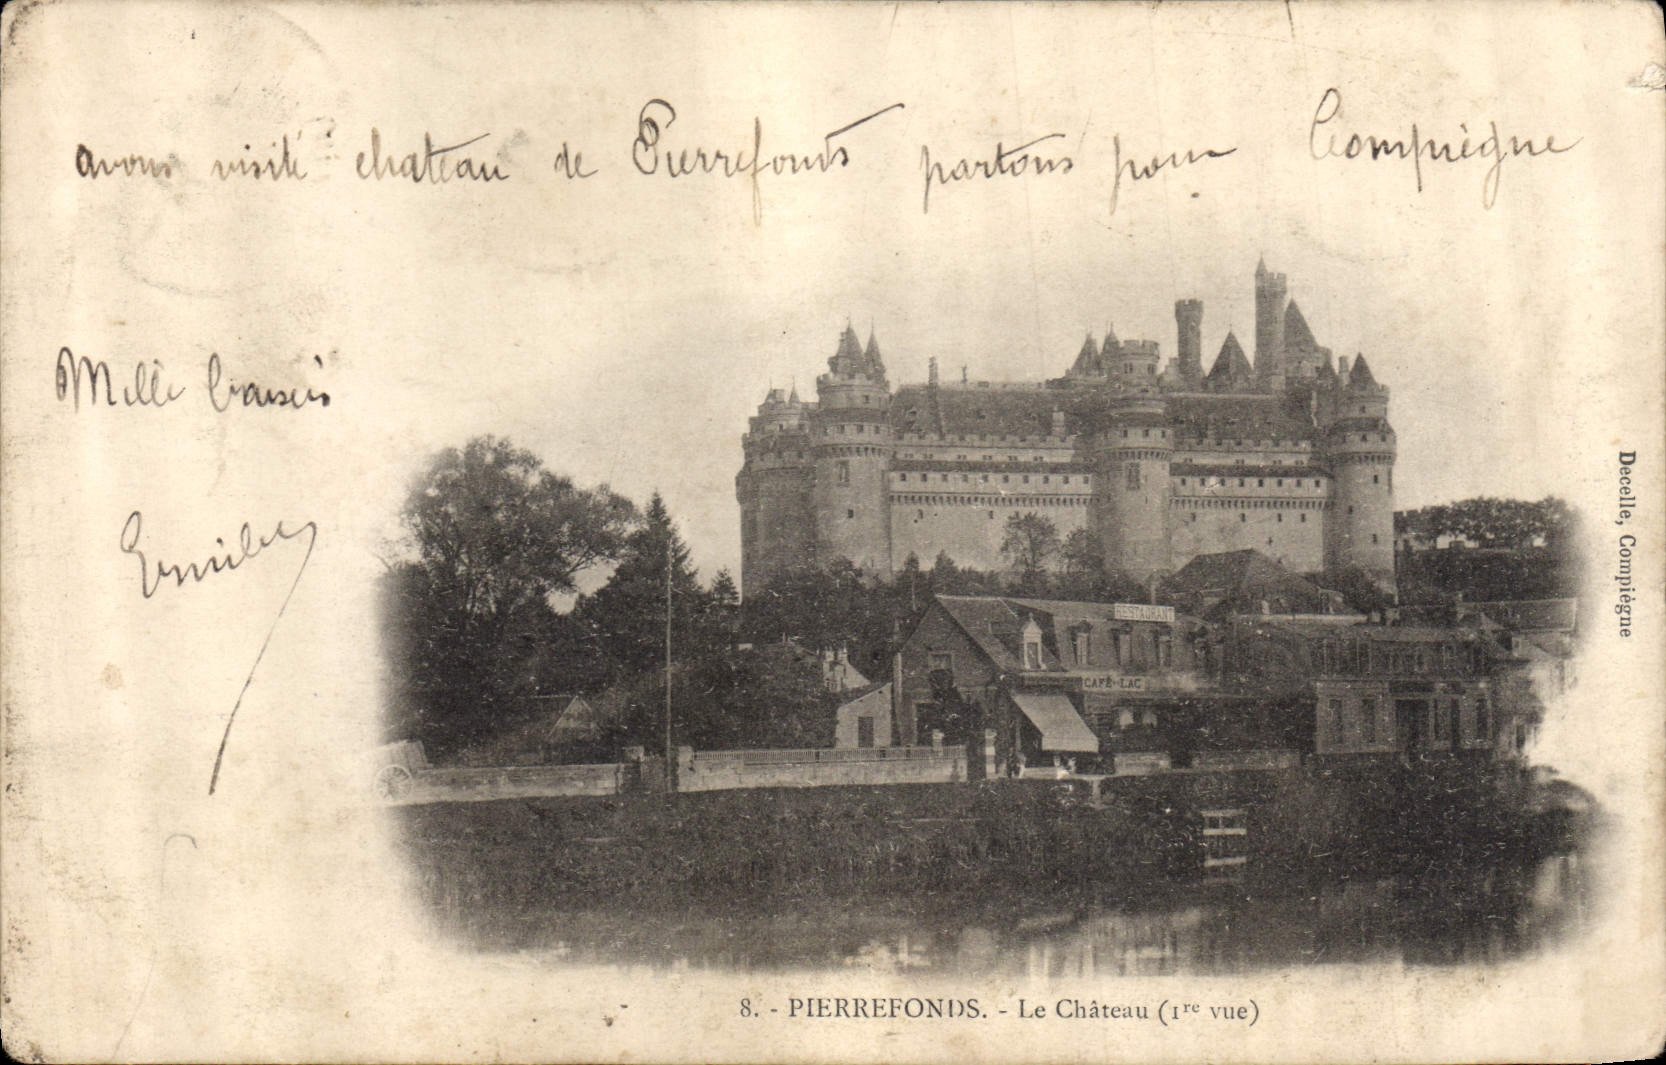 avons visité chateau de Pierrefonds partons pour Compiègne
Mille baisers
Emile
RESTAURANT
CAFÉ - LAC
Decelle, Compiègne
8. - PIERREFONDS. - Le Château (1re vue)